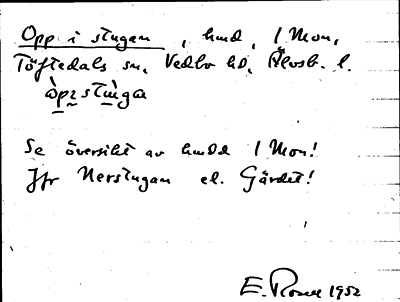 Opp i stugan, hmd, 1 Mon,
Töftedals sn, Vedbo hd, Älvsb. l.
òpɪstùŋa
Se översikt av hmdd 1 Mon!
Jfr Nerstugan el. Gärdet!
E. Rosell 1952